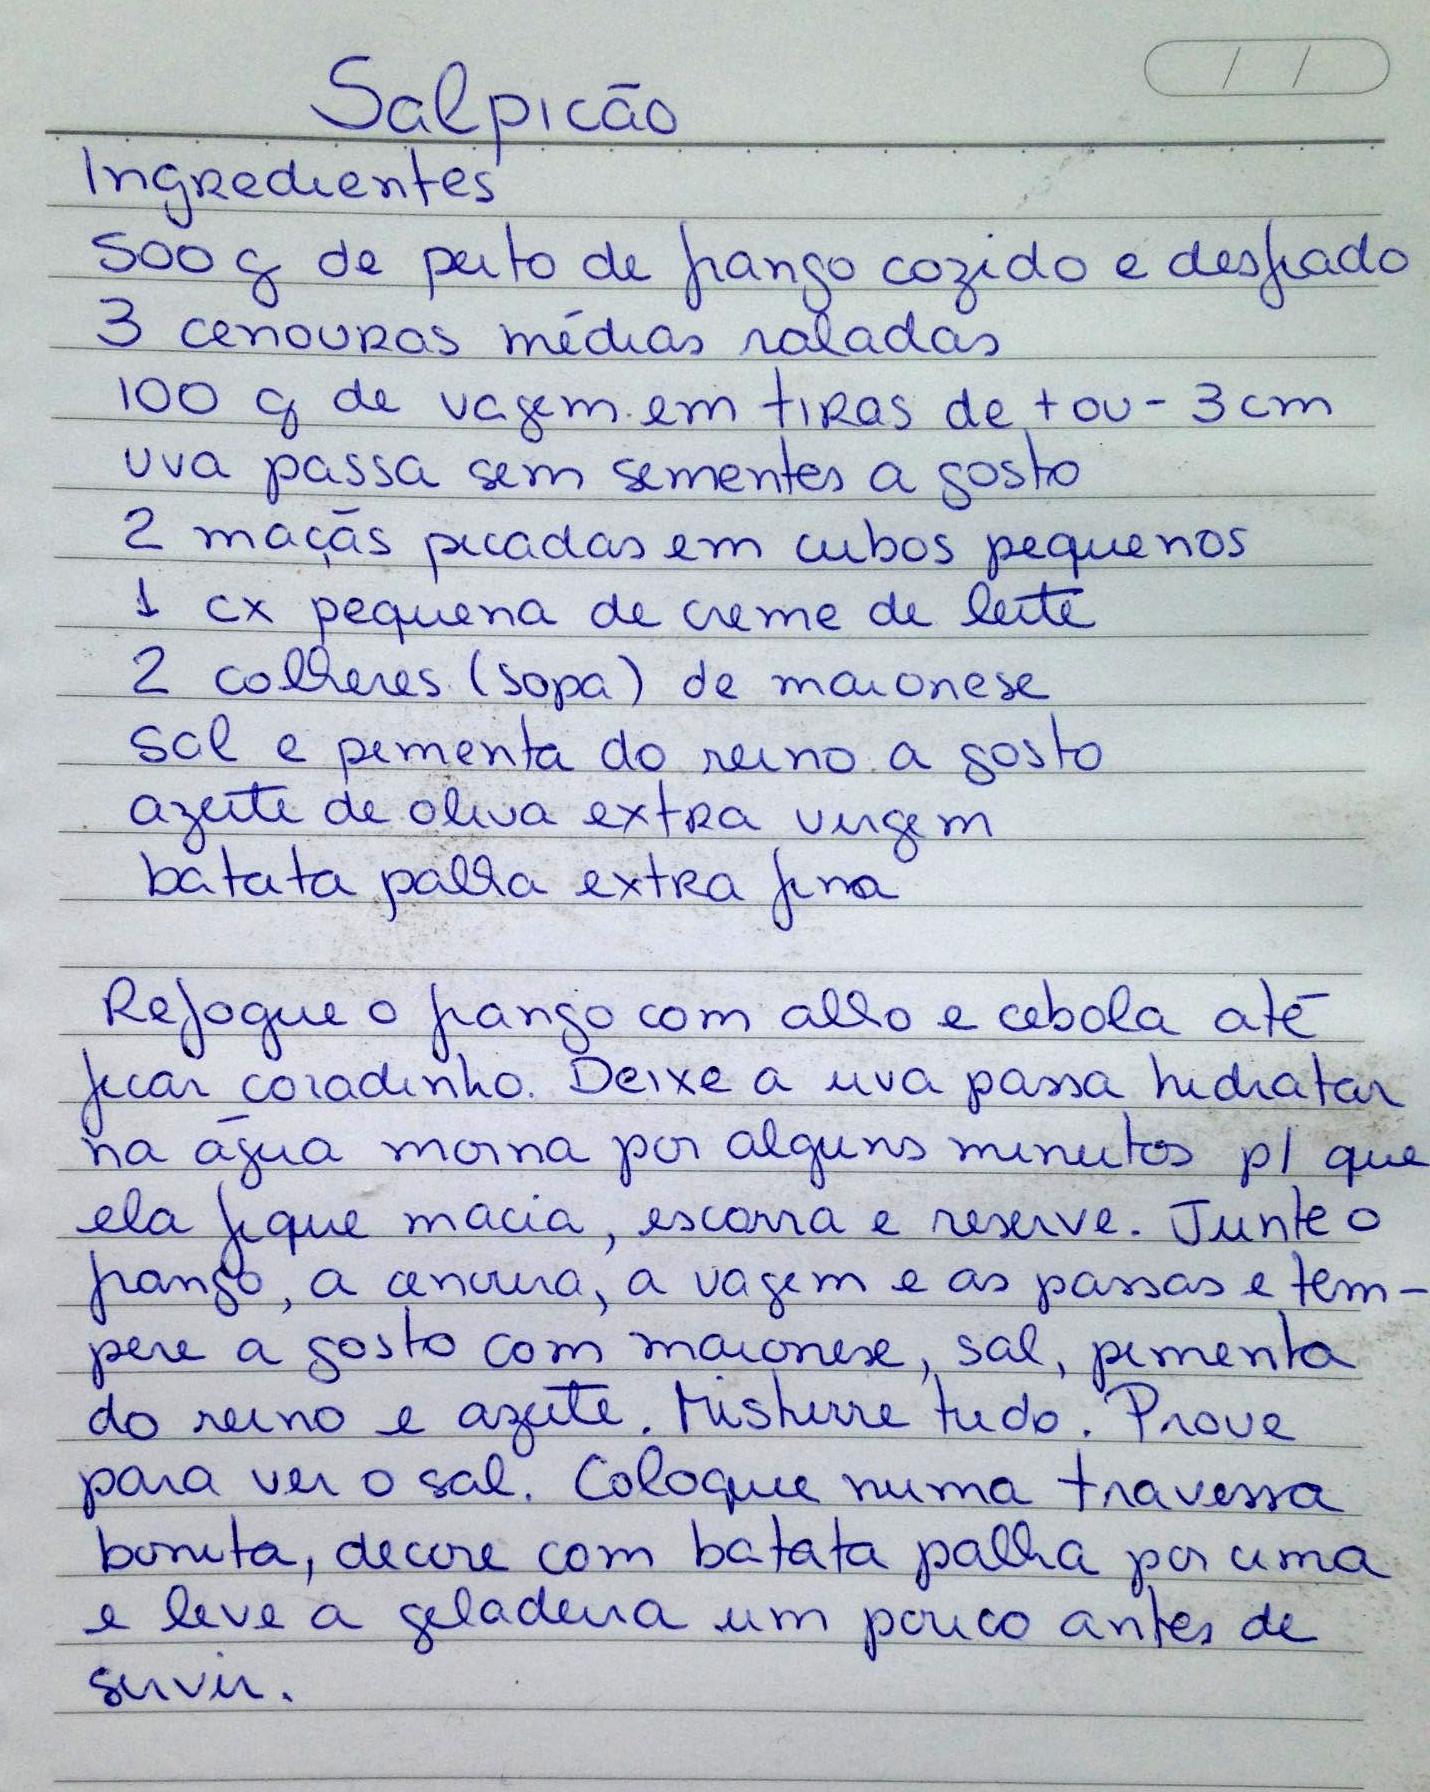 Salpicão
Ingredientes
500 g de peito de frango cozido e desfiado
3 cenouras médias raladas
100 g de vagem em tiras de + ou - 3 cm
uva passa sem sementes a gosto
2 maçãs picadas em cubos pequenos
1 cx pequena de creme de leite
2 colheres (sopa) de maionese
sal e pimenta do reino a gosto
azeite de oliva extra virgem
batata palha extra fina
Refogue o frango com alho e cebola até
ficar coradinho. Deixe a uva passa hidratar
na água morna por alguns minutos p/ que
ela fique macia, escorra e reserve. Junte o
frango, a cenoura, a vagem e as passas e tem-
pere a gosto com maionese, sal, pimenta
do reino e azeite. Misturre tudo. Prove
para ver o sal. Coloque numa travessa
bonita, decore com batata palha por cima
e leve a geladeira um pouco antes de
servir.